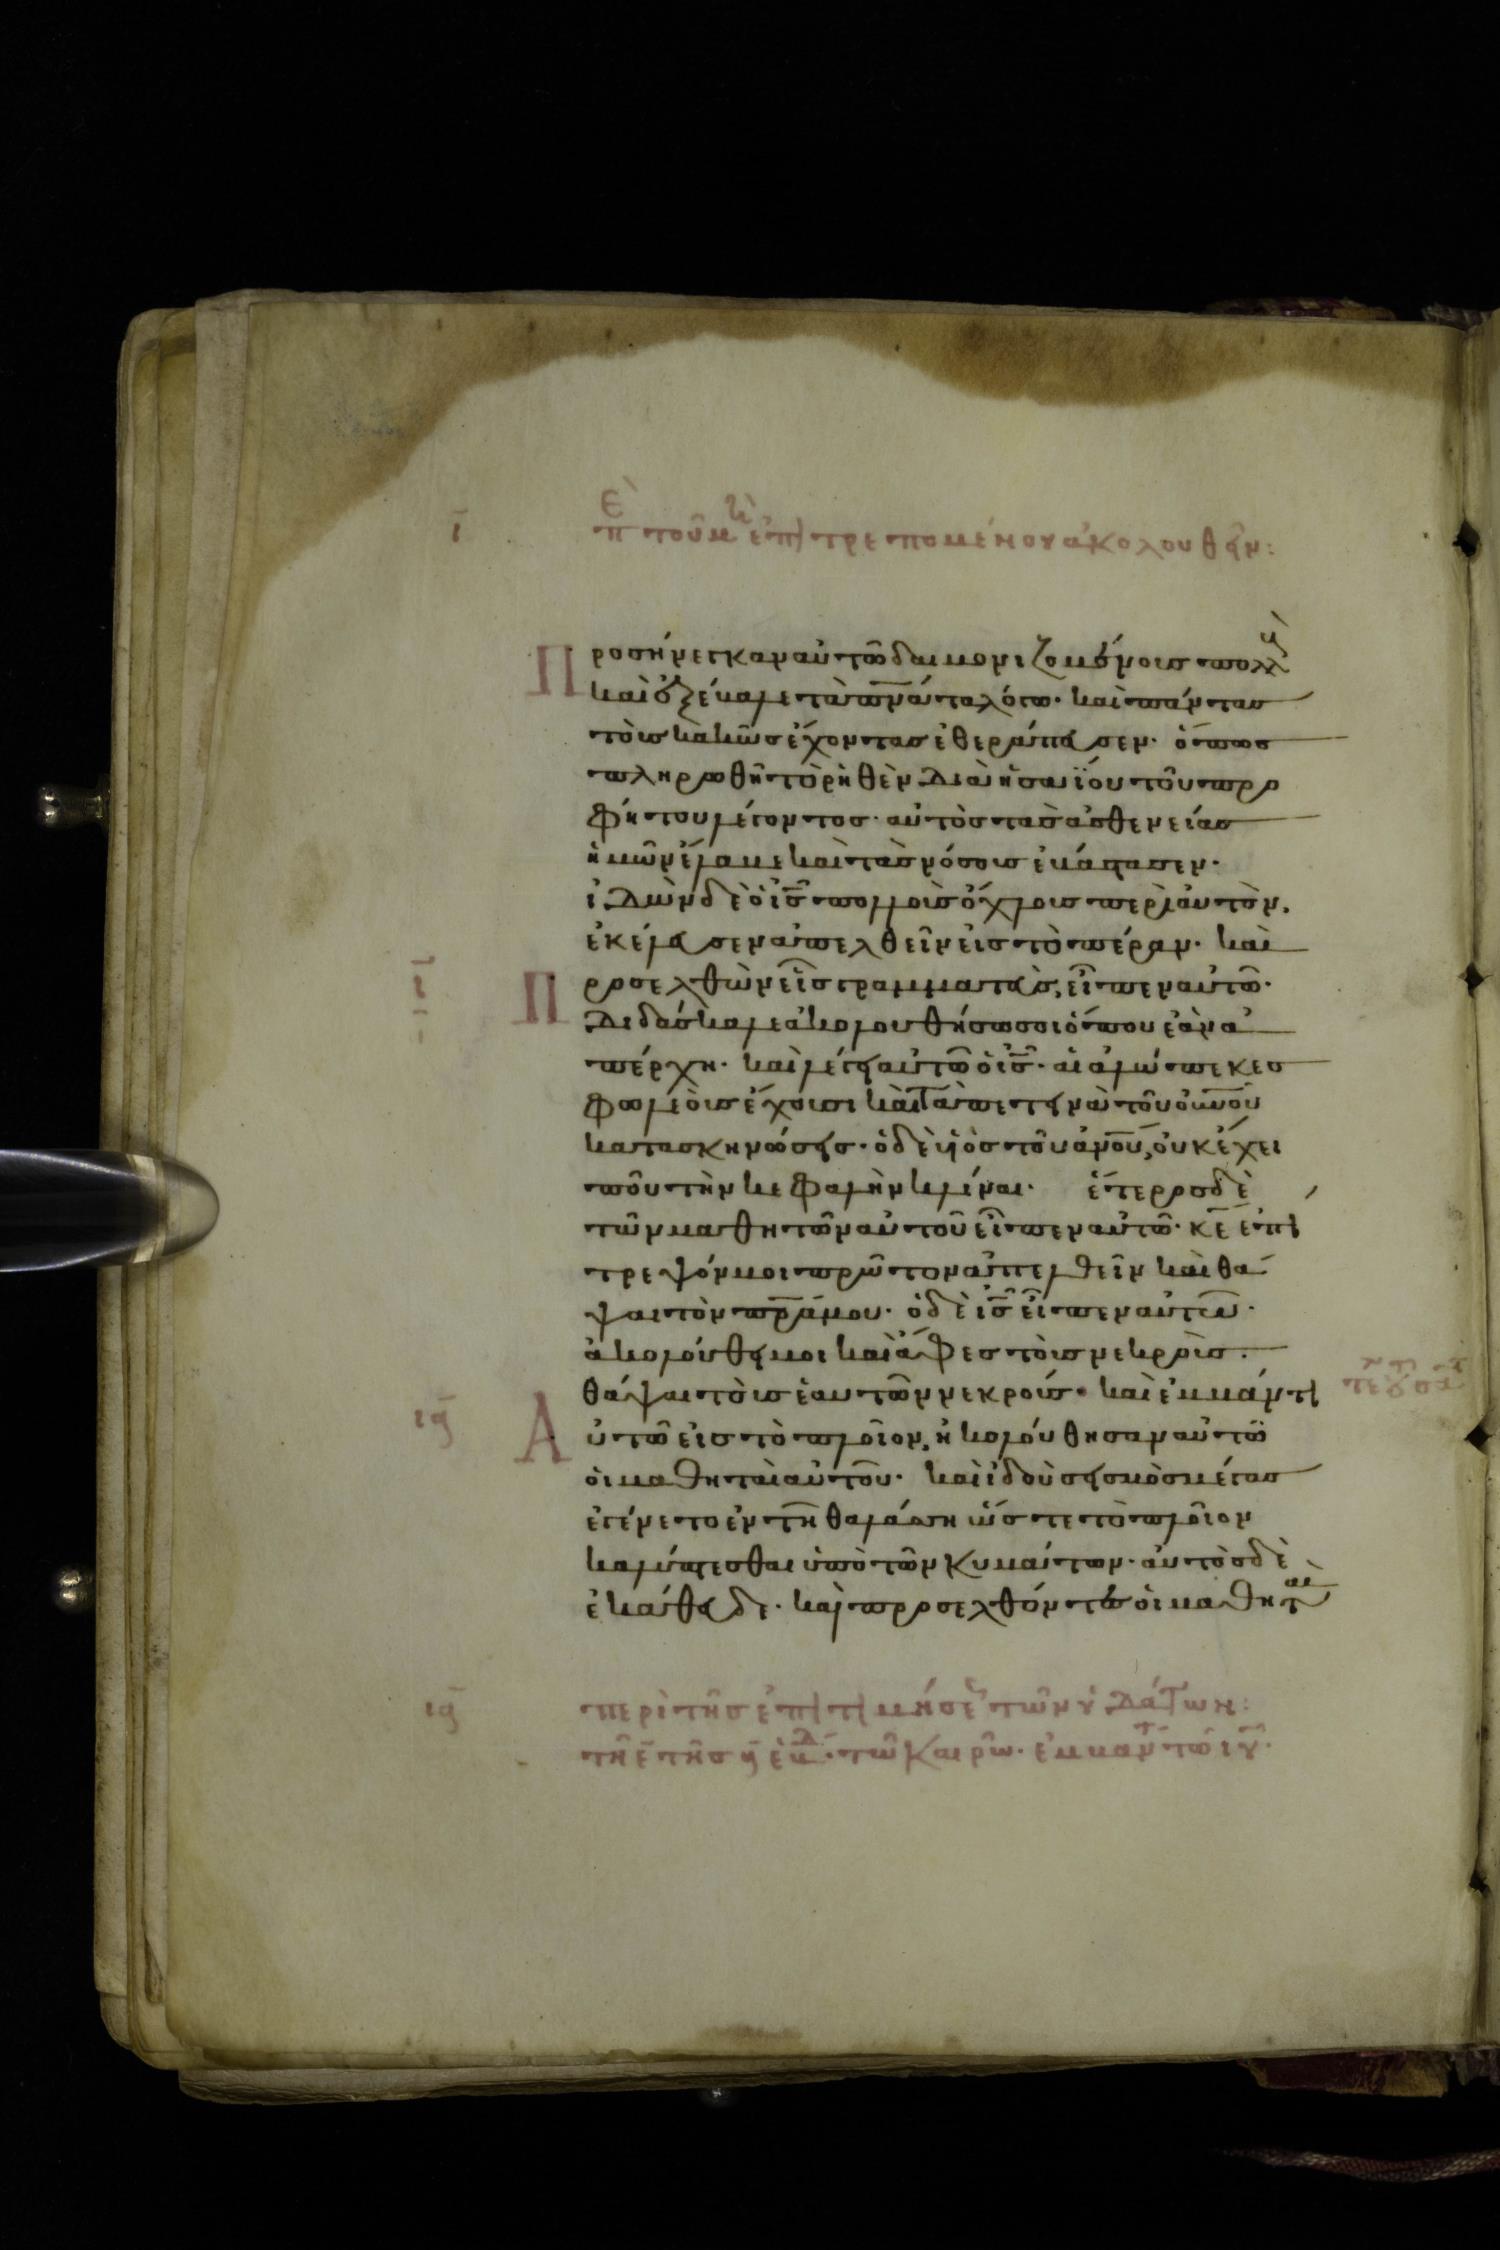 ῑ περὶ τοῦ μὴ ἐπιτρεπομένου ἀκολουθεῖν:
Προσήνεγκαν αὐτῶ δαιμονιζομένους πολλοὺς
καὶ ἐξέβαλε τὰ πν̅ατα λόγω· καὶ πάντας
τοὺς κακῶς ἔχοντας ἐθεράπευσεν· ὅπως
πληρωθῆ τὸ ῥηθὲν διὰ ἡσαΐου τοῦ προ
φήτου λέγοντος· αὐτὸς τὰς ἀσθενείας
ἡμῶν ἔλαβε καὶ τὰς νόσους ἐβάστασεν·
ἰδὼν δὲ ὁ ι̅ς̅ πολλοὺς ὄχλους περὶ αὐτὸν,
ἐκέλευσεν ἀπελθεῖν εἰς τὸ πέραν· καὶ
Προσελθὼν εἷς γραμματεὺς, εἶπεν αὐτῶ·
διδάσκαλε ἀκολουθήσω σοι ὅπου ἐὰν ἀ
πέρχη· καὶ λέγει αὐτῶ ὁ ι̅ς̅· αἱ ἀλώπεκες
φωλεοὺς ἔχουσι καὶ τὰ πετεινὰ τοῦ ου̅νου
κατασκηνώσεις· ὁ δὲ υἱὸς τοῦ αν̅ου, οὐκ ἔχει
ποῦ τὴν κεφαλὴν κλίναι· ἕτερος δὲ
τῶν μαθητῶν αὐτοῦ εἶπεν αὐτῶ· κ̅ε̅ ἐπί
τρεψόν μοι πρῶτον ἀπελθεῖν καὶ θά
ψαι τὸν πρ̅α μου· ὁ δὲ ι̅ς̅ εἶπεν αὐτῶ·
ἀκολούθει μοι καὶ ἄφες τοὺς νεκροὺς·
θάψαι τοὺς ἑαυτῶν νεκρούς· καὶ ἐμβάντι
Αὐτῶ εἰς τὸ πλοῖον, ἠκολούθησαν αὐτῶ
οἱ μαθηταὶ αὐτοῦ· καὶ ἰδοὺ σεισμὸς μέγας
ἐγένετο ἐν τῆ θαλάσση ὥστε τὸ πλοῖον
καλύπτεσθαι ὑπὸ τῶν κυμάτων· αὐτὸς δὲ
ἐκάθευδε· καὶ προσελθόντες οἱ μαθηταὶ
ια̅ περὶ τῆς ἐπιτιμήσεως τῶν ὑδάτων:
τῆ ε̅ τῆς
τῶ καιρῶ· ἐμβάντ τῶ ιυ̅·